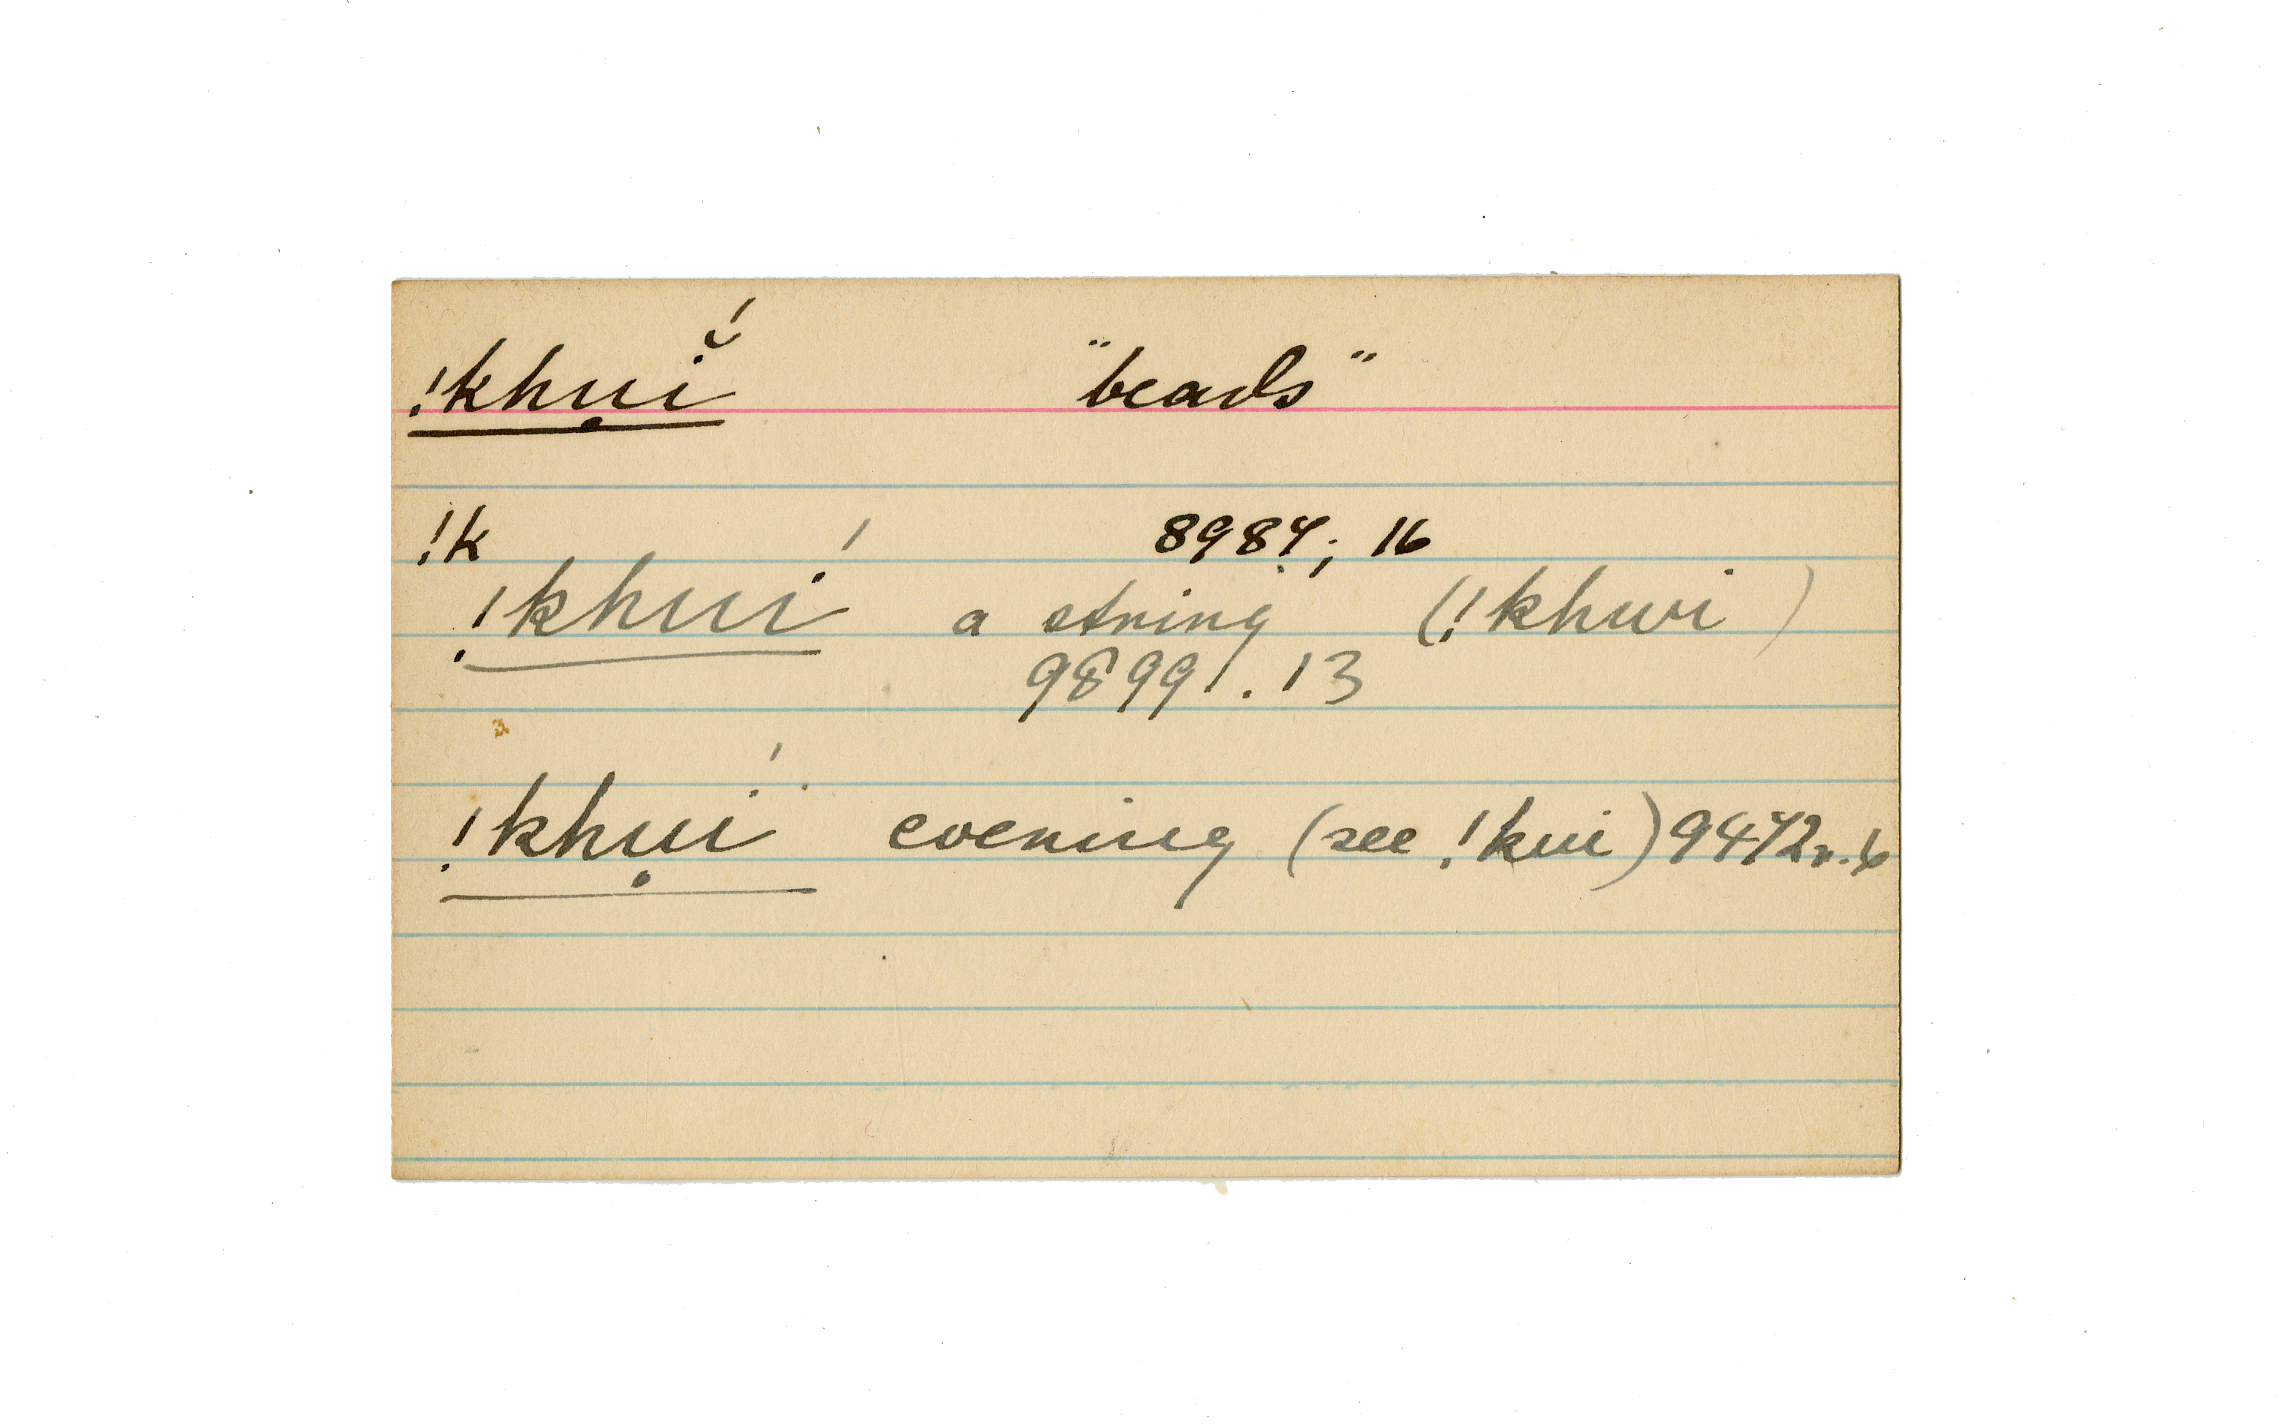 !khụĭ́ "beads"
!k 8984; 16
!khuí a string (!khwi)
9899'. 13
!khụí evening (see !kui) 9472r. 6